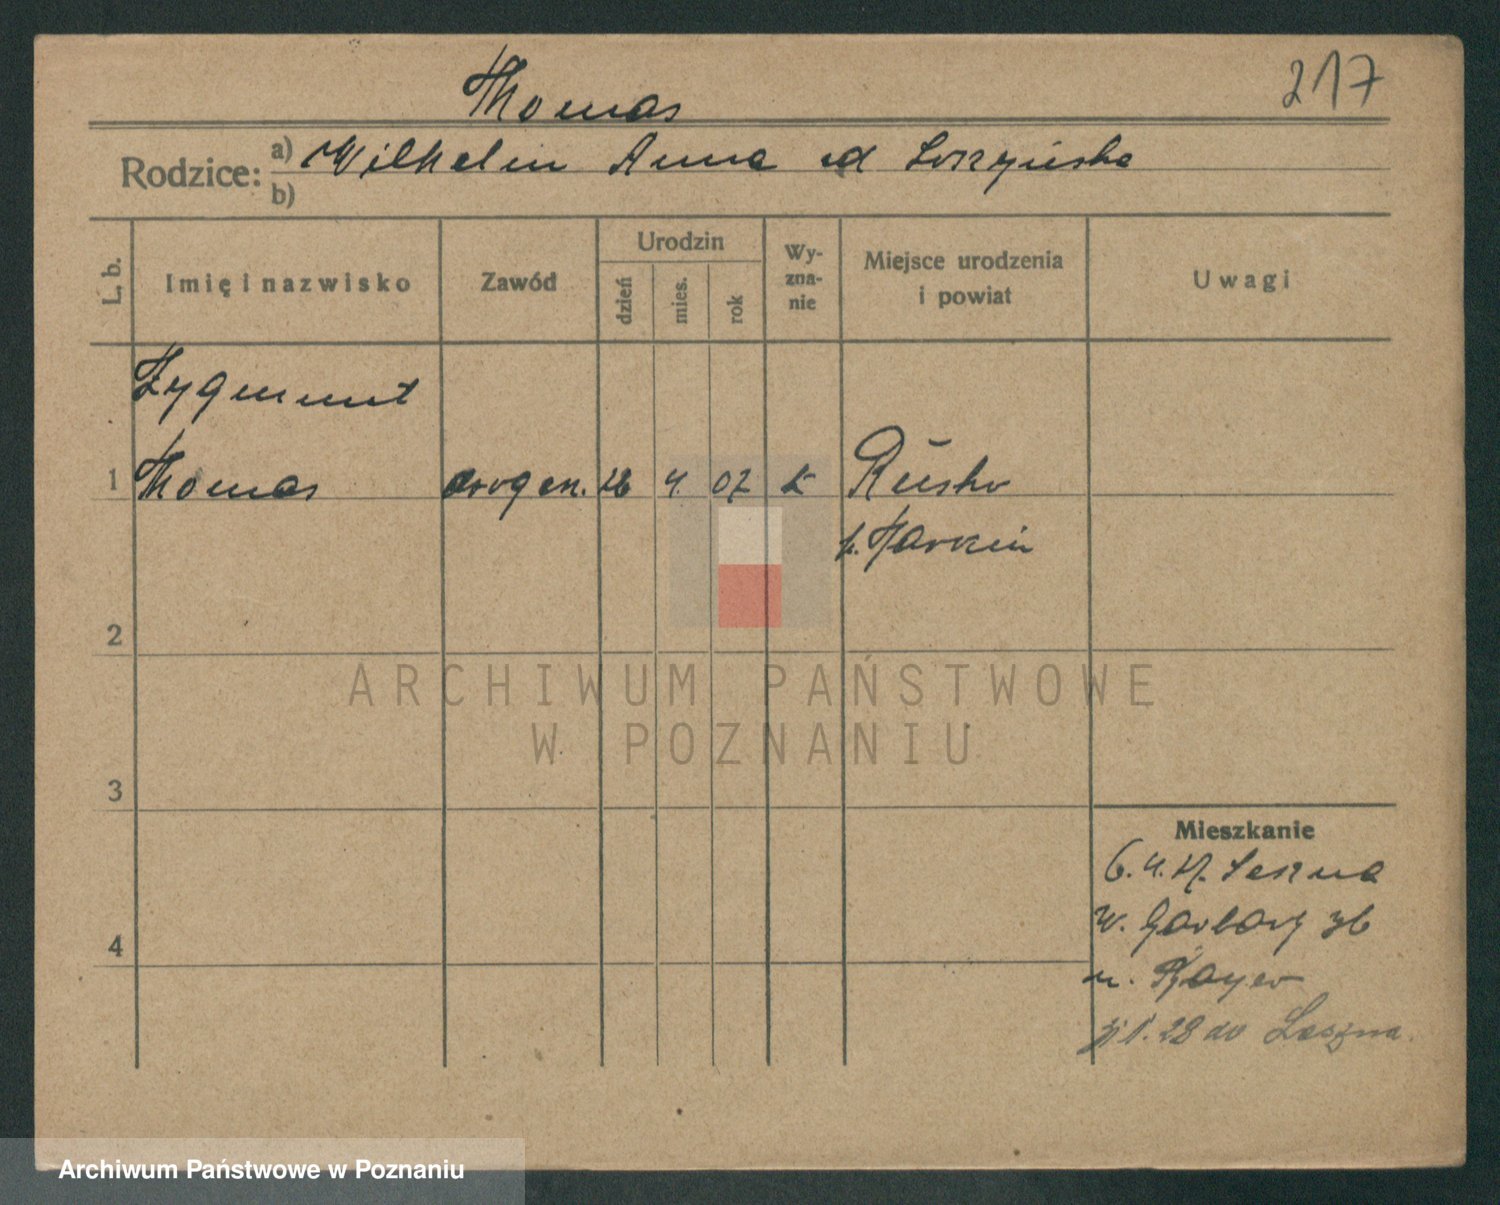 217
Thomas
Rodzice: a) Wilhelm Anna
b)
L. b.
Imię i nazwisko
Zawód
Urodzin
dzień
mies.
rok
Wy-
zna-
nie
Miejsce urodzenia
i powiat
Uwagi
Zygmunt
1 Thomas drogen. 4. 07 k Rusko
p. Jarocin
2
3
4
Mieszkanie
6. 4. 27. Leszna
W. Garbary
u. Bayer
1. 28 do Leszna.
ARCHIWUM PAŃSTWOWE
W POZNANIU
Archiwum Państwowe w Poznaniu